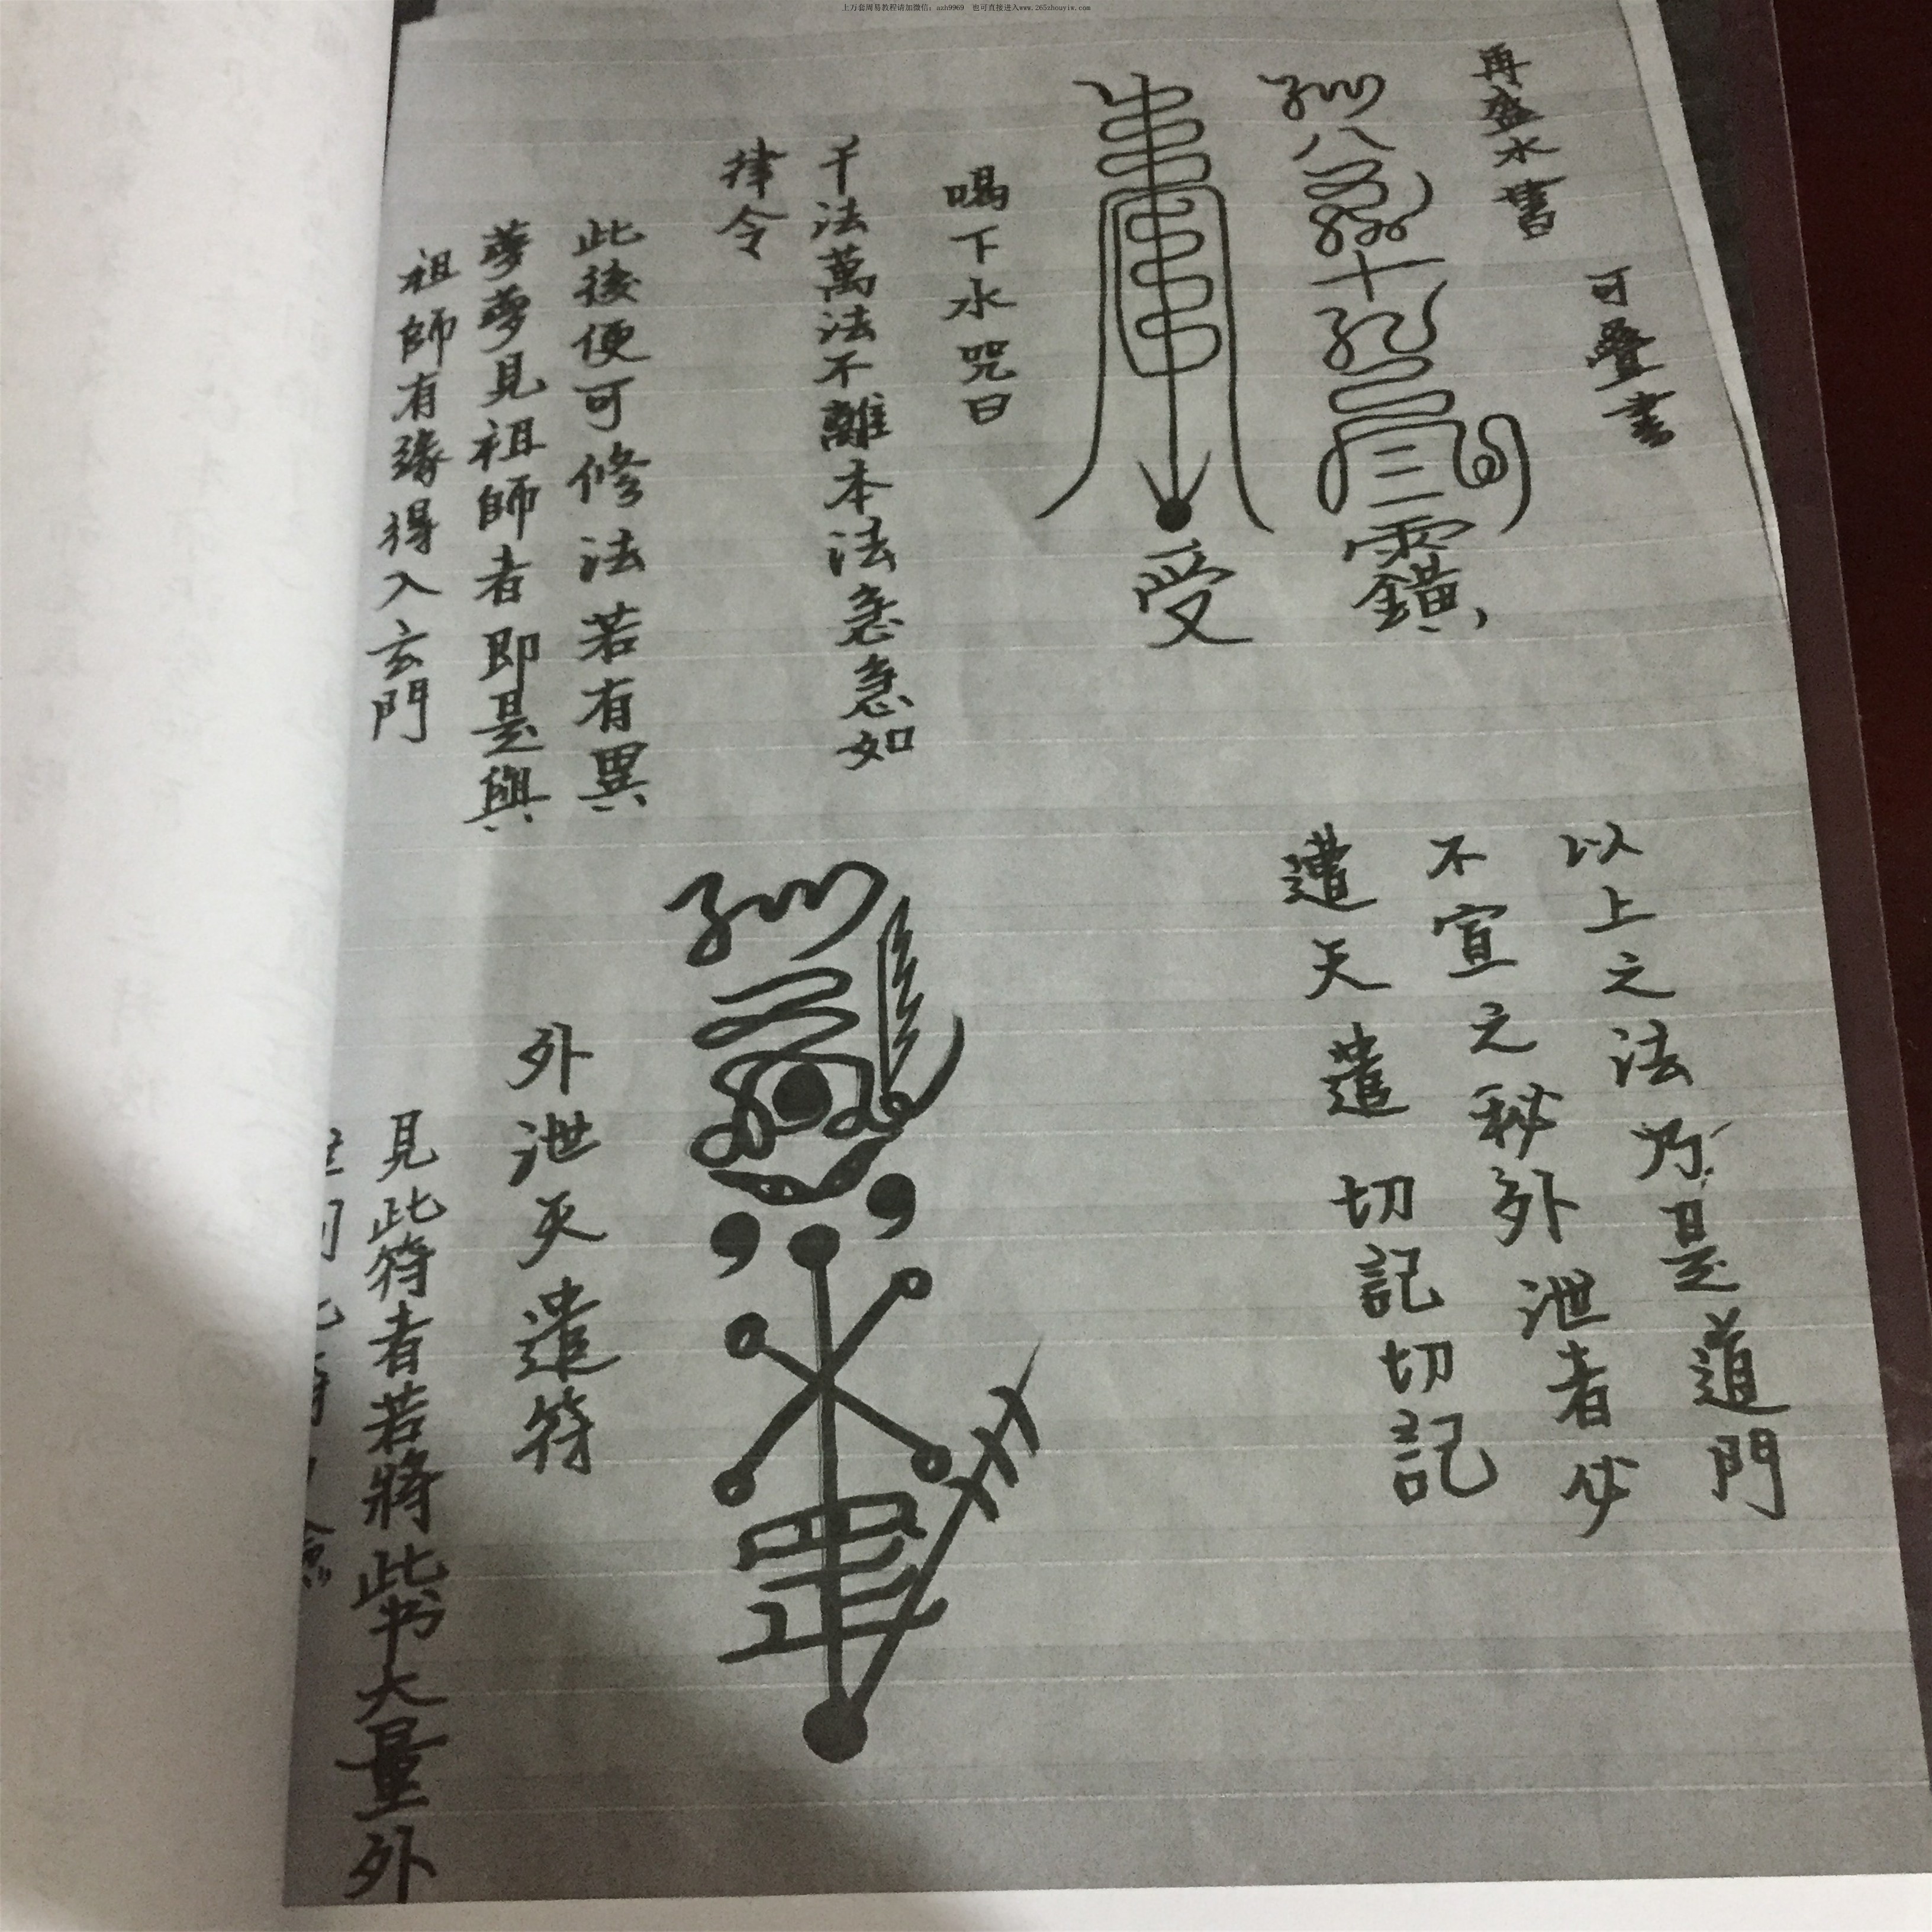 上万套周易教程请加微信：azh9969 也可直接进入www.265zhouyiw.com
再盛水書
可疊書
八
十
三
受
喝下水咒曰
千法萬法不離本法急急如
律令
此後便可修法若有異
夢夢見祖師者即是與
祖師有緣得入玄門
以上之法乃是道門
不宣之秘外泄者必
遭天遣 切記切記
外泄天遣符
見此符者若將此书大量外